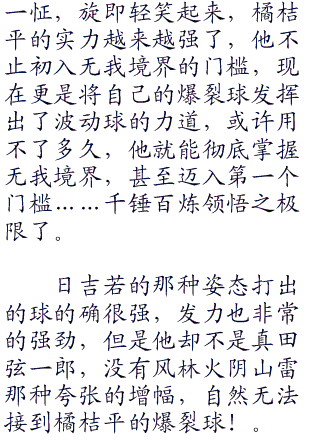 一怔，旋即轻笑起来，橘桔
平的实力越来越强了，他不
止初入无我境界的门槛，现
在更是将自己的爆裂球发挥
出了波动球的力道，或许用
不了多久，他就能彻底掌握
无我境界，甚至迈入第一个
门槛……千锤百炼领悟之极
限了。
日吉若的那种姿态打出
的球的确很强，发力也非常
的强劲，但是他却不是真田
弦一郎，没有风林火阴山雷
那种夸张的增幅，自然无法
接到橘桔平的爆裂球！。